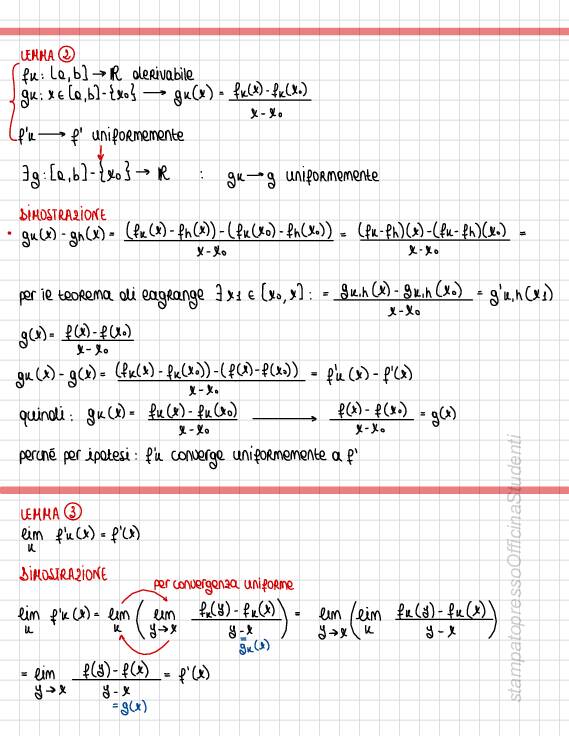 LEMMA ②
fk: [a,b] → ℝ derivabile
gk: x∈[a,b]-{x₀} → gk(x) = (fk(x)-fk(x₀))/(x-x₀)
f'k → f' uniformemente
∃g:[a,b]-{x₀} → ℝ : gk→g uniformemente
DIMOSTRAZIONE
• gk(x) - gh(x) = ((fk(x)-fh(x))-(fk(x₀)-fh(x₀)))/(x-x₀) = ((fk-fh)(x)-(fk-fh)(x₀))/(x-x₀) =
per il teorema di lagrange ∃x₁∈[x₀,x]: = (gk,h(x)-gk,h(x₀))/(x-x₀) = g'k,h(x₁)
g(x) = (f(x)-f(x₀))/(x-x₀)
gk(x)-g(x) = ((fk(x)-fk(x₀))-(f(x)-f(x₀)))/(x-x₀) = f'k(x)-f'(x)
quindi: gk(x) = (fk(x)-fk(x₀))/(x-x₀) → (f(x)-f(x₀))/(x-x₀) = g(x)
perché per ipotesi: f'k converge uniformemente a f'
LEMMA ③
lim k f'k(x) = f'(x)
DIMOSTRAZIONE
per convergenza uniforme
lim k f'k(x) = lim k (lim y→x (fk(y)-fk(x))/(y-x)) = lim y→x (lim k (fk(y)-fk(x))/(y-x))
=gk(x)
= lim y→x (f(y)-f(x))/(y-x) = f'(x)
=g(x)
stampatopressoOfficinaStudenti